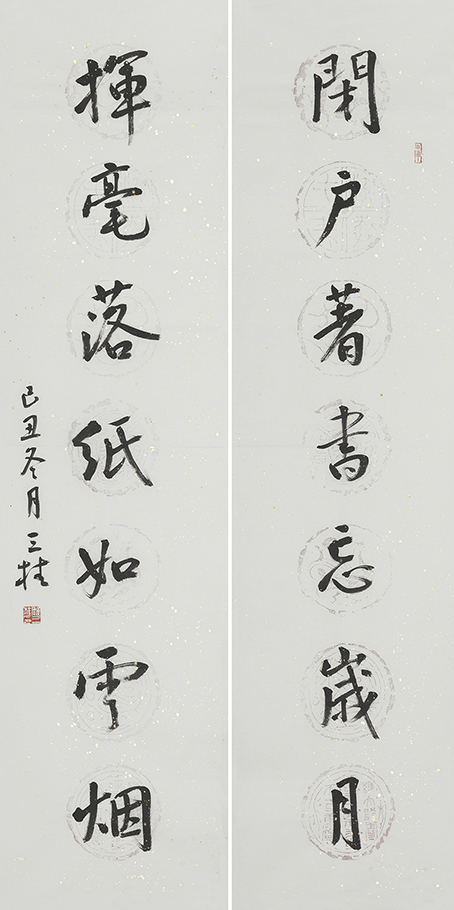 閉户著書忘歲月
揮毫落紙如雲烟
己丑冬月三桂